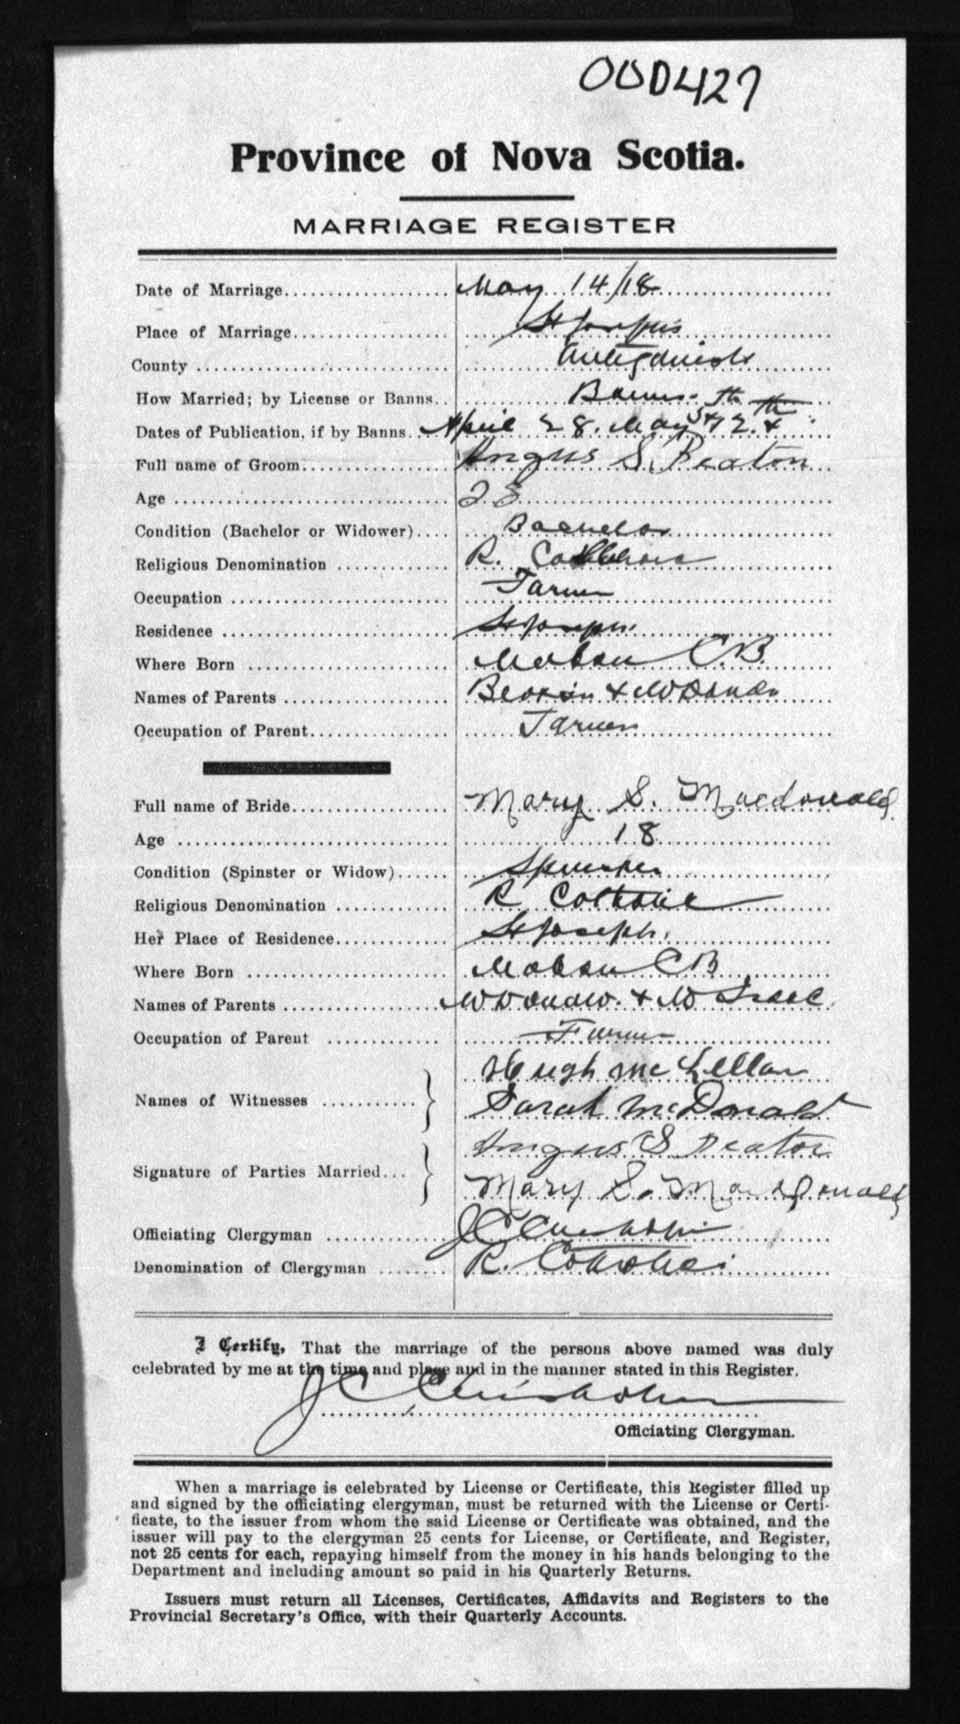 OOD427
Province of Nova Scotia.
MARRIAGE REGISTER
Date of Marriage.................. May 14/18
Place of Marriage................. St Josephs
County ........................... Antigonish
How Married; by License or Banns.. Banns
Dates of Publication, if by Banns.. April 28. May
Full name of Groom................ Angus S. Beaton
Age ..............................
Condition (Bachelor or Widower).... Bachelor
Religious Denomination ........... R. Catholic
Occupation ....................... Farmer
Residence ........................ St Josephs
Where Born ....................... Mabou C.B.
Names of Parents ................. Beaton & McDonald
Occupation of Parent.............. Farmer
Full name of Bride................ Mary S. Macdonald
Age .............................. 18
Condition (Spinster or Widow)...... Spinster
Religious Denomination ........... R Catholic
Her Place of Residence............ St Joseph.
Where Born ....................... Mabou CB
Names of Parents ................. & Mc Isaac
Occupation of Parent ............. Farmer
Hugh McLellan
Names of Witnesses ........... }
Sarah McDonald
Angus S Beaton
Signature of Parties Married... }
Mary S. Macdonald
Officiating Clergyman ............ J C Chisholm
Denomination of Clergyman ........ R. Catholic
I Certify, That the marriage of the persons above named was duly
celebrated by me at the time and place and in the manner stated in this Register.
J C Chisholm
Officiating Clergyman.
When a marriage is celebrated by License or Certificate, this Register filled up
and signed by the officiating clergyman, must be returned with the License or Certi-
ficate, to the issuer from whom the said License or Certificate was obtained, and the
issuer will pay to the clergyman 25 cents for License, or Certificate, and Register,
not 25 cents for each, repaying himself from the money in his hands belonging to the
Department and including amount so paid in his Quarterly Returns.
Issuers must return all Licenses, Certificates, Affidavits and Registers to the
Provincial Secretary's Office, with their Quarterly Accounts.